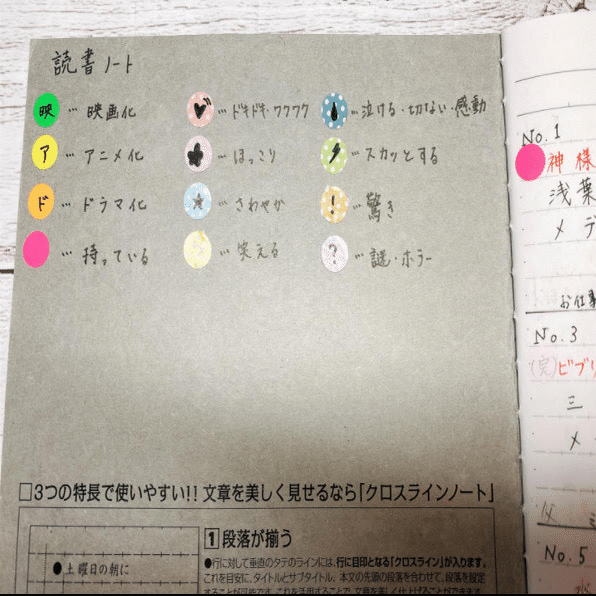 読書ノート
映 … 映画化
ア … アニメ化
ド … ドラマ化
… 持っている
… ドキドキ・ワクワク
… ほっこり
… さわやか
… 笑える
… 泣ける・切ない・感動
… スカッとする
! … 驚き
? … 謎・ホラー
□3つの特長で使いやすい!! 文章を美しく見せるなら「クロスラインノート」
●土曜日の朝に
1 段落が揃う
●行に対して垂直のタテのラインには、行に目印となる「クロスライン」が入ります。
これを目安に、タイトルとサブタイトル、本文の先頭の段落を合わせて、段落を設定
No.1
神様
浅葉
メデ
お仕事
No.3
(完)ビブリ
三
メ
No.5